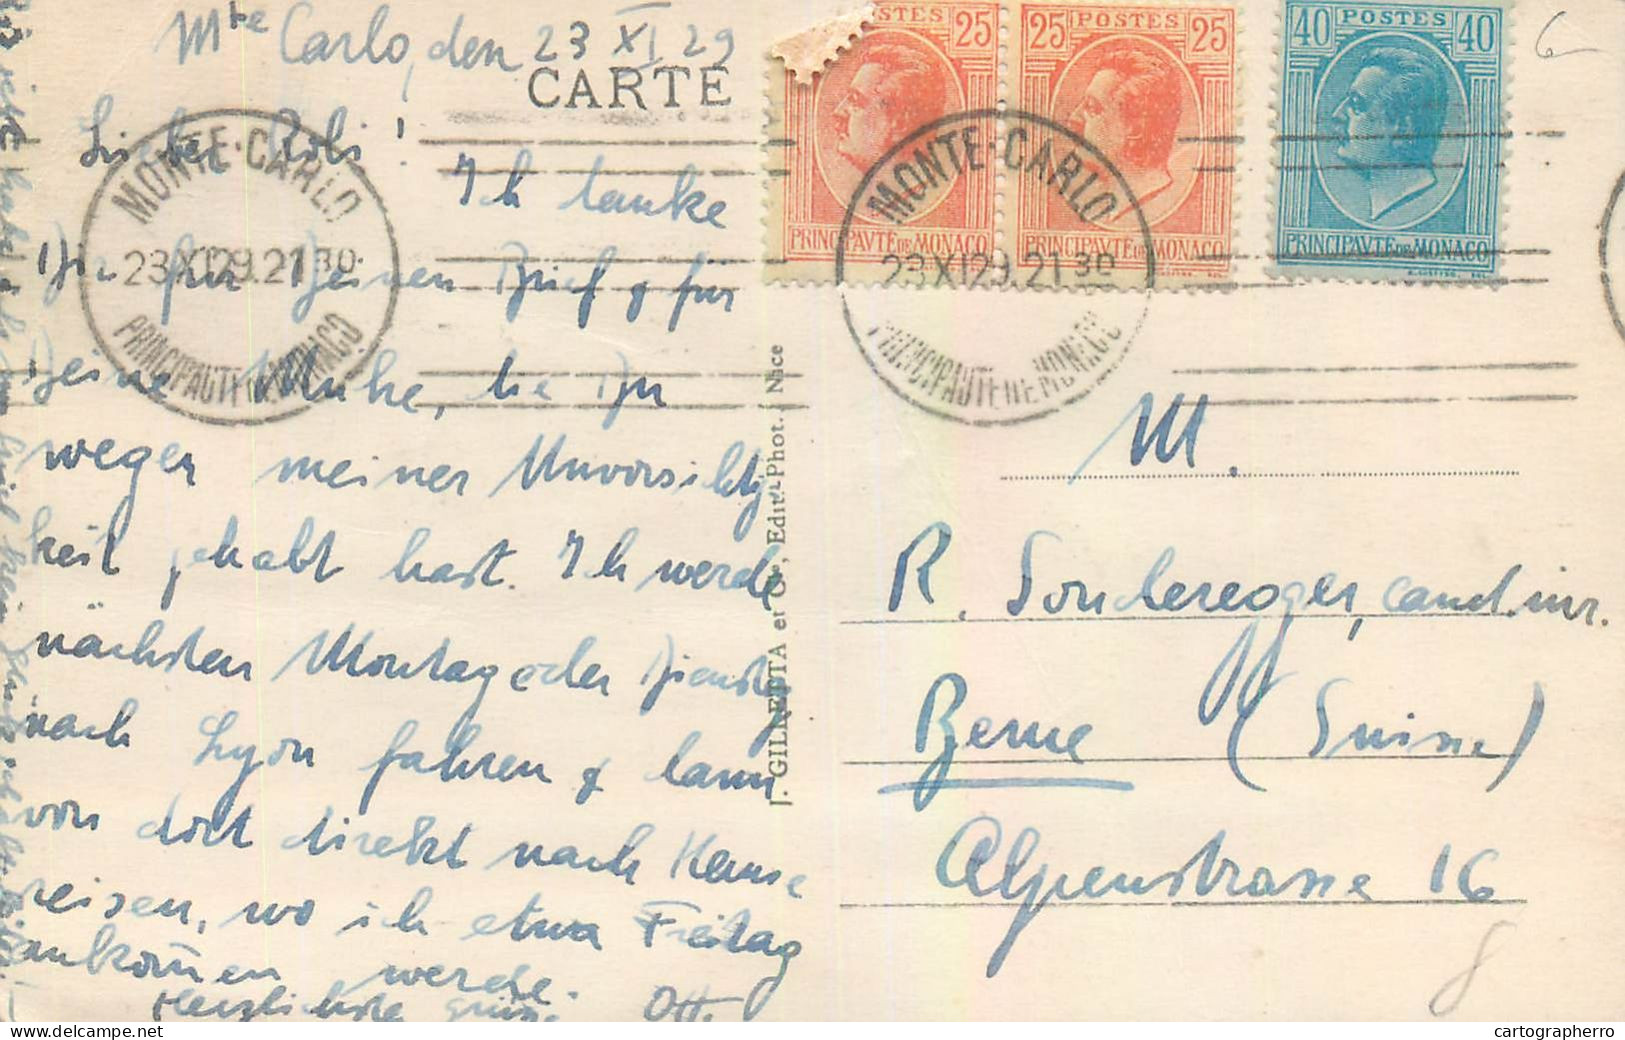 Mte Carlo, den 23 XI 29
CARTE
Lieber Robi!
Ich danke
Dir für Deinen Brief & für
Deine Mühe, die Du
wegen meiner Unvorsichtig
keit gehabt hast. Ich werde
nächsten Montag oder Dienstag
nach Lyon fahren & dann
von dort direkt nach Hause
reisen, wo ich etwa Freitag
ankom̄en werde.
Herzlichste Grüsse Otto
J. GILLETTA et Cie, Edit.-Phot., Nice
POSTES 25
PRINCIPAVTÉ DE MONACO
25 POSTES 25
PRINCIPAVTÉ DE MONACO
40 POSTES 40
PRINCIPAVTÉ DE MONACO
MONTE-CARLO
23 XI 29. 21 30
PRINCIPAUTE DE MONACO
MONTE-CARLO
23 XI 29. 21 30
PRINCIPAUTE DE MONACO
6
M.
R. Sonderegger, cand. iur.
Berne (Suisse)
Alpenstrasse 16
8
cartographerro